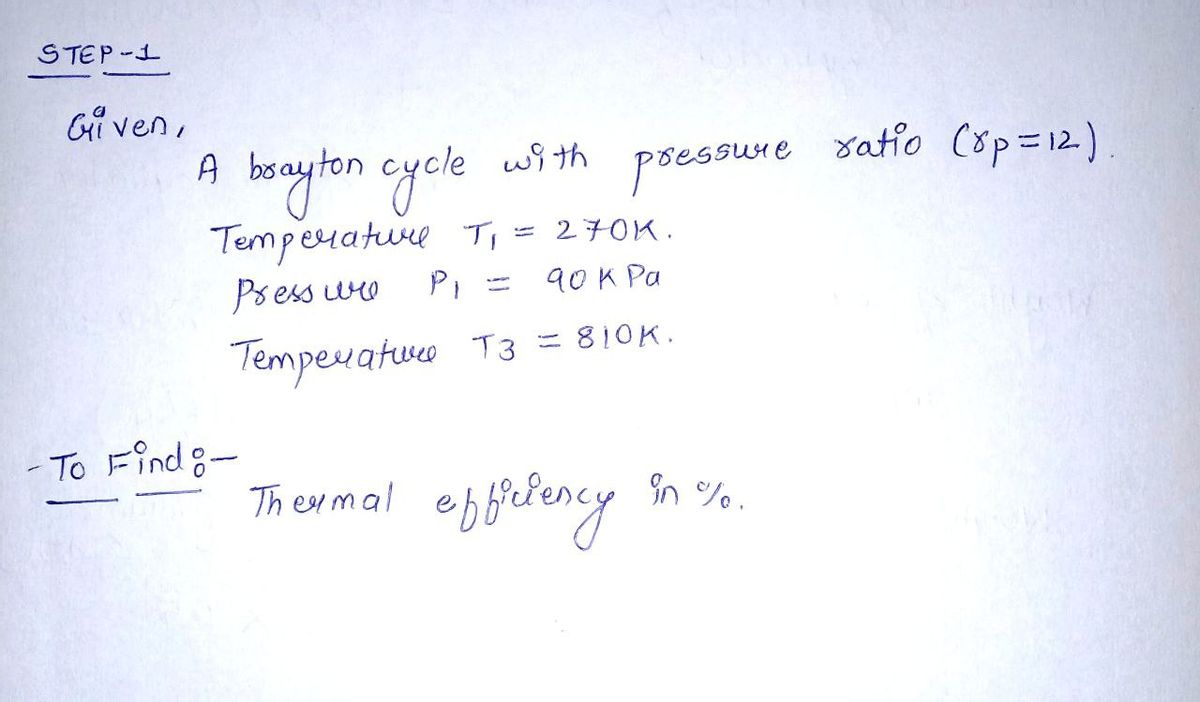 STEP-1
Given,
A brayton cycle with pressure ratio (rp=12).
Temperature T1 = 270K.
Pressure P1 = 90 K Pa
Temperature T3 = 810K.
- To Find:-
Thermal efficiency in %.